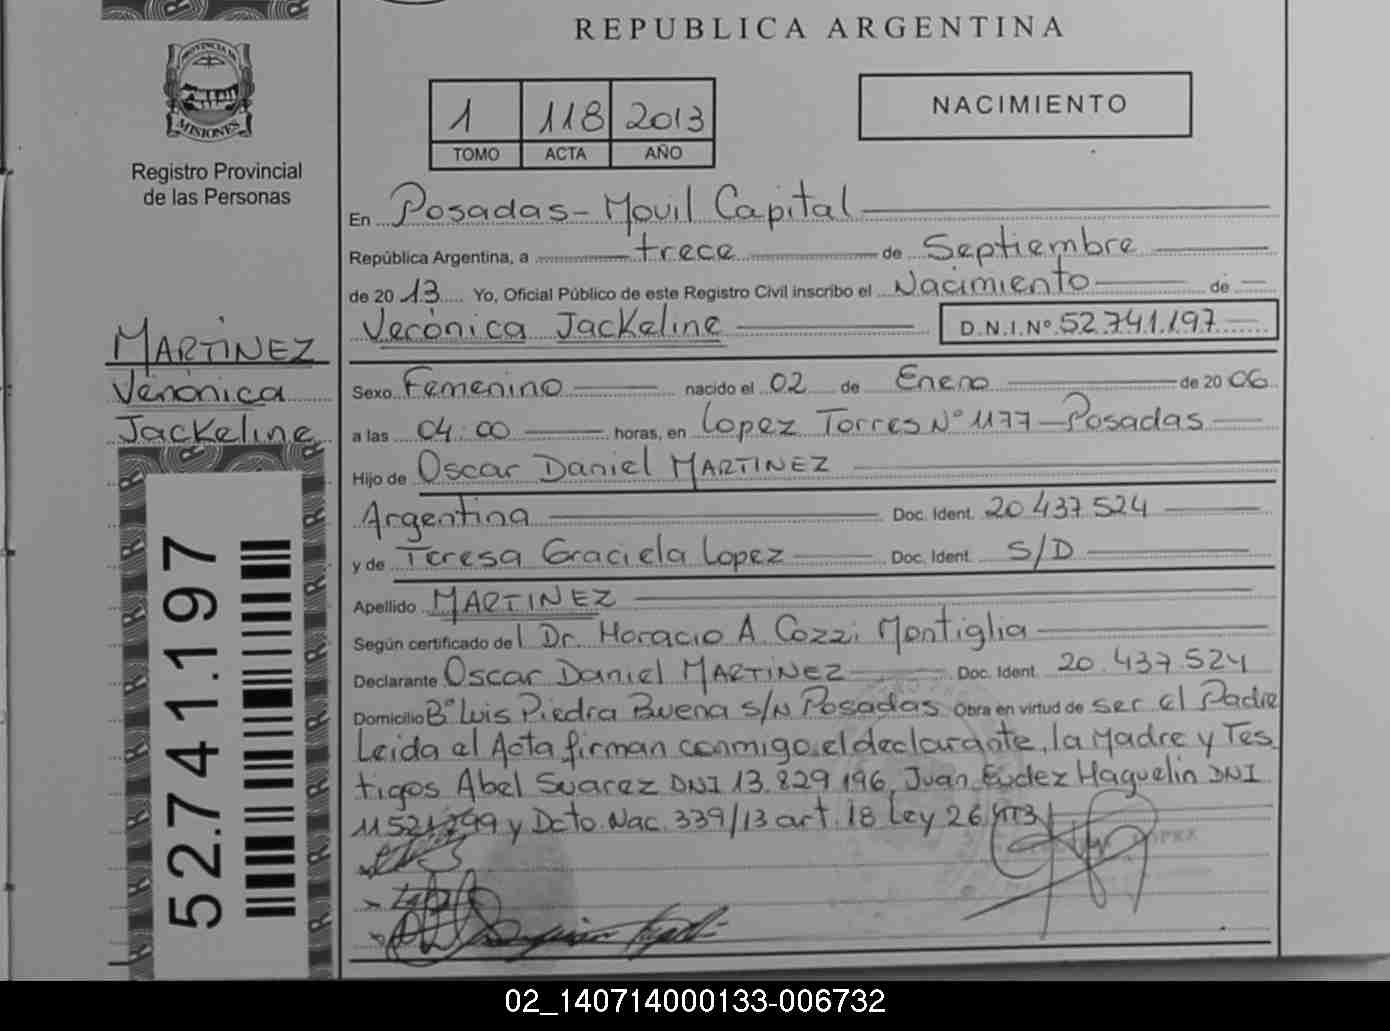 REPUBLICA ARGENTINA
PROVINCIA DE
MISIONES
Registro Provincial
de las Personas
1 118 2013
TOMO ACTA AÑO
NACIMIENTO
En Posadas - Movil Capital
República Argentina, a trece de Septiembre
de 2013 Yo, Oficial Público de este Registro Civil inscribo el Nacimiento de
Verónica Jackeline D.N.I.Nº 52.741.197
MARTINEZ
Verónica
Jackeline
52.741.197
Sexo Femenino nacido el 02 de Enero de 2006
a las 04:00 horas, en Lopez Torres Nº 1177 - Posadas
Hijo de Oscar Daniel MARTINEZ
Argentina Doc. Ident. 20.437.524
y de Teresa Graciela Lopez Doc. Ident. S/D
Apellido MARTINEZ
Según certificado del Dr. Horacio A. Cozzi Montiglia
Declarante Oscar Daniel MARTINEZ Doc. Ident. 20.437.524
Domicilio Bº Luis Piedra Buena S/N Posadas Obra en virtud de ser el Padre
Leida el Acta firman conmigo el declarante, la Madre y Tes
tigos Abel Suarez DNI 13.829.196, Juan Eudez Haguelin DNI
y Dcto. Nac. 339/13 art. 18 Ley 26.413
02_140714000133-006732